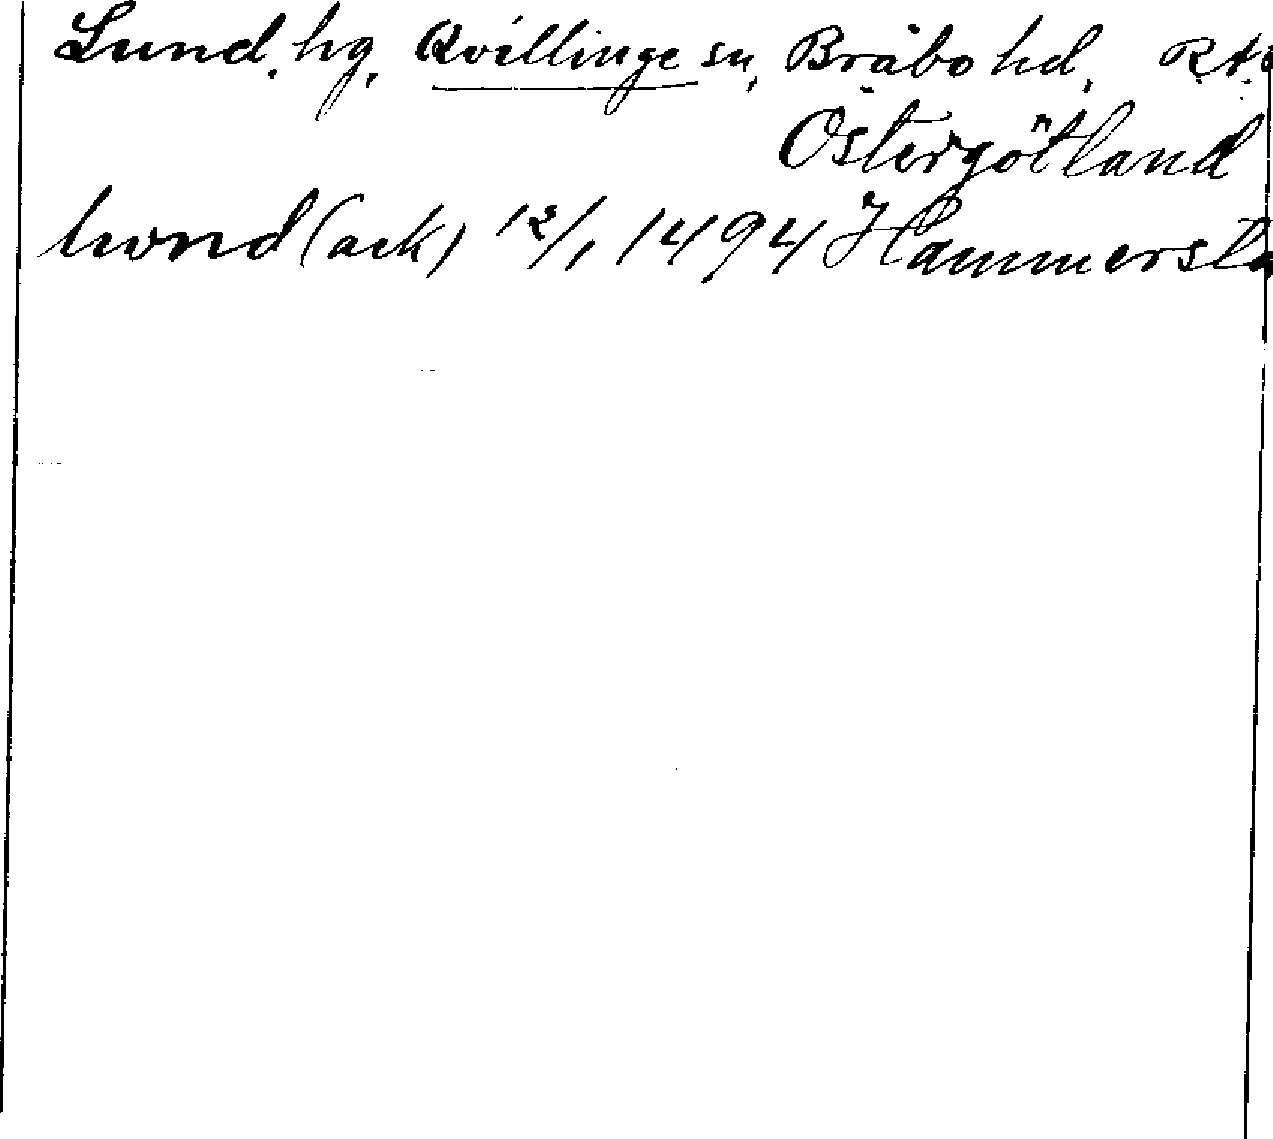 Lund, hg, Qvillinge sn, Bråbo hd,
Östergötland
lwnd (ack) 12/1 1494 Hammersta